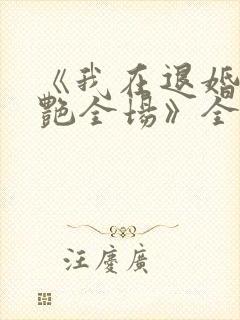 《我在退婚
艷全場》全
汪慶廣